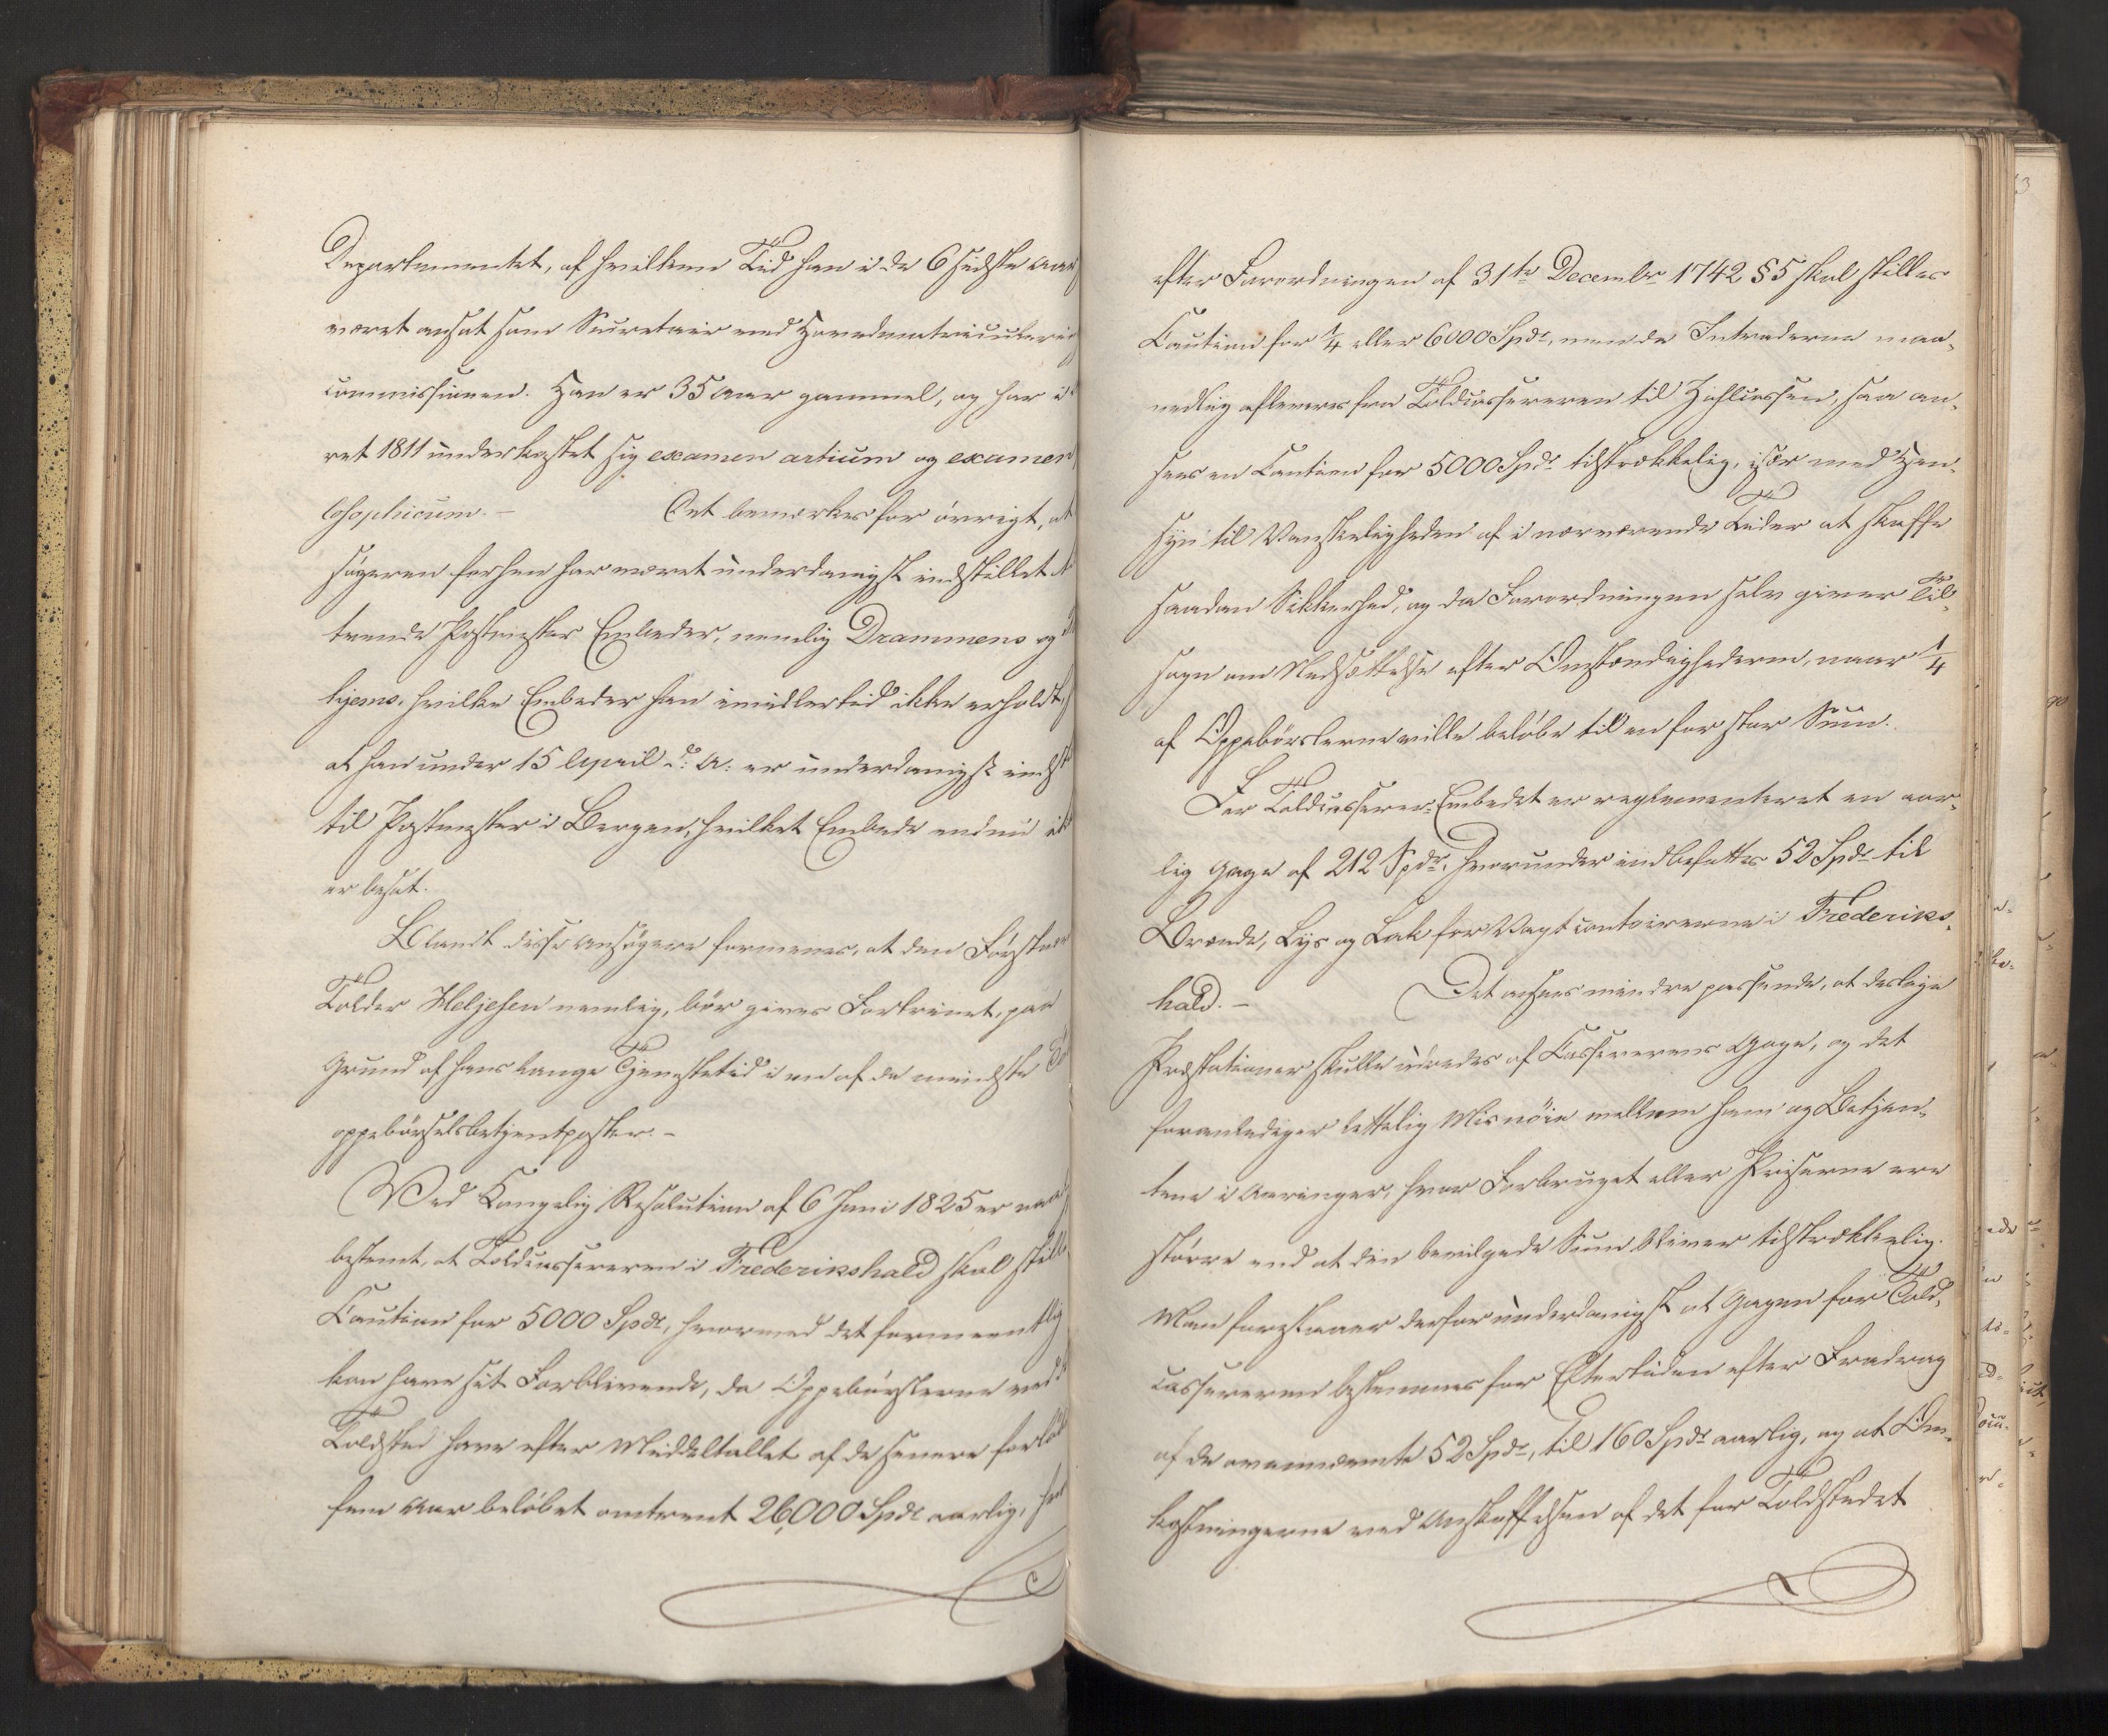 Departementet, af hvilken Tid han i de 6 sidste Aar
været ansat som Secretair ved Hovedmatriculerings
commissionen. Han er 35 Aar gammel, og har i
ret 1811 underkastet sig examen artium og examen
losophicum. – Det bemærkes for övrigt, at
søgeren forhen har været underdanigst indstillet
tvende Postmester Embeder, nemlig Drammens og
hjems, hvilke Embeder han imidlertid ikke erholdt,
at han under 15 April d: A: er underdanigst indst
til Postmester i Bergen, hvilket Embede endnu ik
er besat.
Blandt disse Ansögere formenes, at den Förstnæv
Tolder Heljesen nemlig, bör gives Fortrinet, paa
Grund af hans lange Tjenstetid i en af de mindste
oppebörselsbetjentposter. –
Ved Kongelig Resolution af 6 Juni 1825 er
bestemt, at Toldcassereren i Frederikshald skal stille
Caution for 5000 Spdr, hvormed det formeentlig
kan have sit Forblivende, da Oppebörslerne ved
Toldsted have efter Middeltallet af de senere forløb
fem Aar belöbet omtrent 26,000 Spdr aarlig,
efter Forordningen af 31te Decembr 1742 § 5 skal stilles
Caution for 1/4 eller 6000 Spdr, men da Intraderne maa-
nedlig afleveres fra Toldcassereren til Zahlcassen, saa an-
sees en Caution for 5000 Spdr tilstrækkelig, især med Hen-
syn til Vanskeligheden af i nærværende Tider at skaffe
saadan Sikkerhed, og da Forordningen selv giver Til-
sagn om Nedsættelse efter Omstændighederne, naar 1/4
af Oppebörslerne ville belöbe til en for stor Sum.
For Toldcasserer-Embedet er reglementeret en aar-
lig Gage af 212 Spdr, hvorunder indbefattes 52 Spdr til
Brænde, Lys og Lak for Vagtcontoirerne i Frederiks-
hald. – Det ansees mindre passende, at deslige
Præstationer skulle udredes af Cassererens Gage, og det
foranlediger lettelig Misnöie mellem ham og Betjen-
tene i Aaringer, hvor Forbruget eller Priserne ere
större end at den bevilgede Sum bliver tilstrækkelig.
Man foreslaaer derfor underdanigst at Gagen for Told-
cassereren bestemmes for Eftertiden efter Fradrag
af de ovennævnte 52 Spdr, til 160 Spdr aarlig, og at Om-
kostningerne ved Anskaffelsen af det for Toldstedet